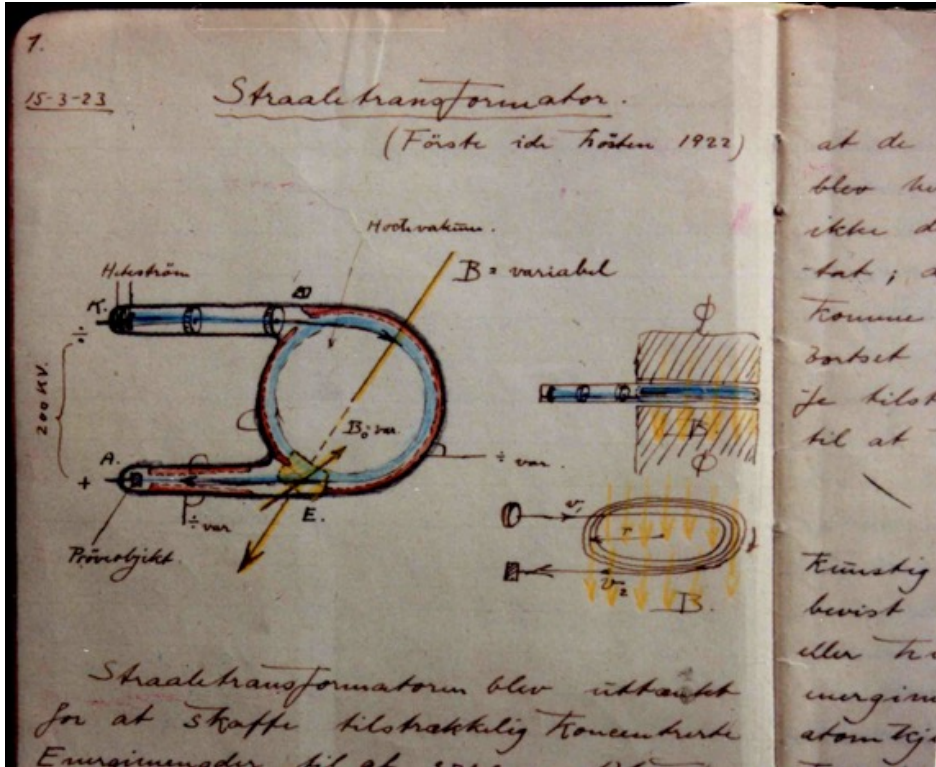 1.
15-3-23
Straaletransformator.
(Förste ide hösten 1922)
Hochvakuum.
B = variabel
K.
÷
200 KV.
B÷ var.
÷ var.
A.
+
E.
÷ var
Pröveobjekt.
ϕ
B.
ϕ
v₁
r
v₂
B.
Straaletransformatoren blev uttænkt
for at skaffe tilstrækkelig koncentrerte
Energimengder til at
at de
blev
ikke d
-tat ;
komme
bortset
til at
Kunstig
bevist
eller
energim
atomkje